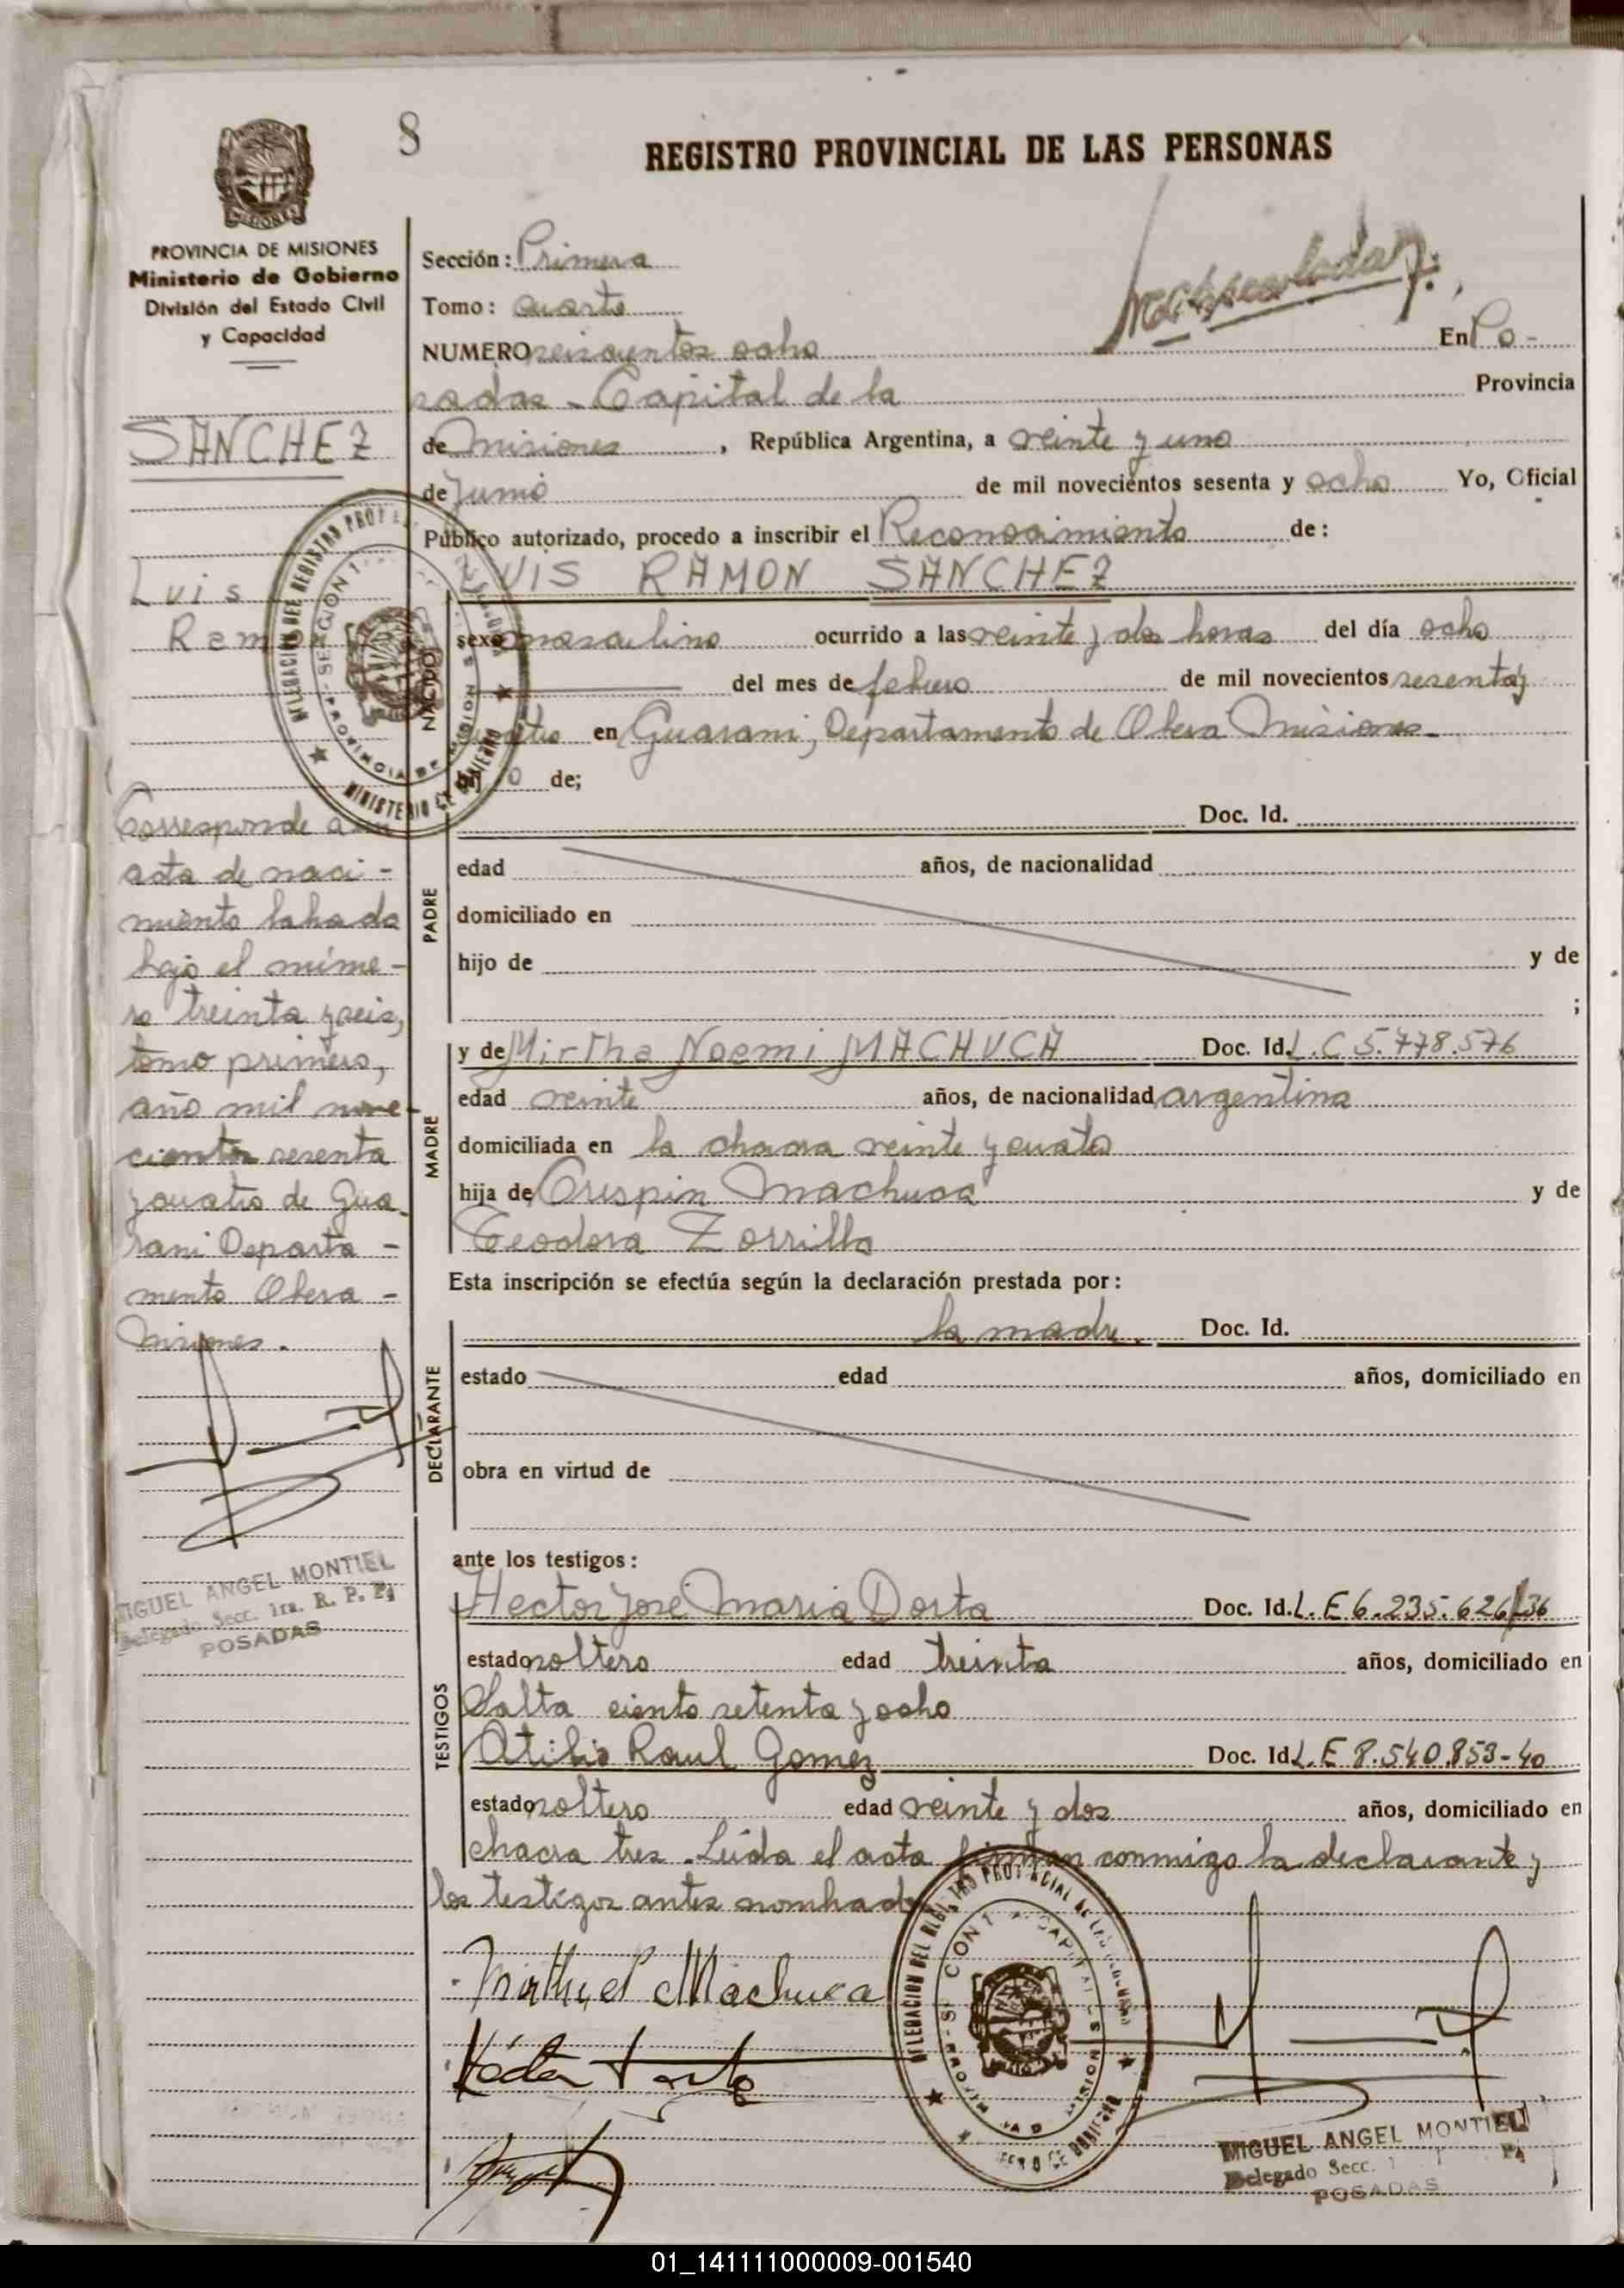 8
REGISTRO PROVINCIAL DE LAS PERSONAS
MISIONES
PROVINCIA DE MISIONES
Ministerio de Gobierno
División del Estado Civil
y Capacidad
SANCHEZ
Luis
Ramon
Corresponde a un
acta de naci-
miento labrada
bajo el núme-
ro treinta y seis,
tomo primero,
año mil nove-
cientos sesenta
y cuatro de Gua-
rani Departa-
mento Obera-
Misiones.
MIGUEL ANGEL MONTIEL
Delegado Secc. 1ra. R. P. P.
POSADAS
Sección: Primera
Tomo: cuarto
NUMERO seiscientos ocho En Po-
sadas - Capital de la Provincia
de Misiones, República Argentina, a veinte y uno
de Junio de mil novecientos sesenta y ocho Yo, Oficial
Público autorizado, procedo a inscribir el Reconocimiento de:
LUIS RAMON SANCHEZ
NACIDO
sexo masculino ocurrido a las veinte y dos horas del día ocho
del mes de febrero de mil novecientos sesenta y
cuatro en Guarani, Departamento de Obera Misiones-
hijo de;
PADRE
Doc. Id.
edad años, de nacionalidad
domiciliado en
hijo de y de
;
MADRE
y de Mirtha Noemi MACHUCA Doc. Id. L.C 5.778.576
edad veinte años, de nacionalidad argentina
domiciliada en la chacra veinte y cuatro
hija de Crispin Machuca y de
Teodora Zorrilla
Esta inscripción se efectúa según la declaración prestada por:
DECLARANTE
la madre. Doc. Id.
estado edad años, domiciliado en
obra en virtud de
ante los testigos:
TESTIGOS
Hector José Maria Dorta Doc. Id. L.E 6.235.626/36
estado soltero edad treinta años, domiciliado en
Salta ciento setenta y ocho
Atilio Raul Gomez Doc. Id. L.E 8.540.853-40
estado soltero edad veinte y dos años, domiciliado en
chacra tres. Leída el acta firman conmigo la declarante y
los testigos antes nombrados
Machuca
MIGUEL ANGEL MONTIEL
Delegado Secc.
POSADAS
01_141111000009-001540